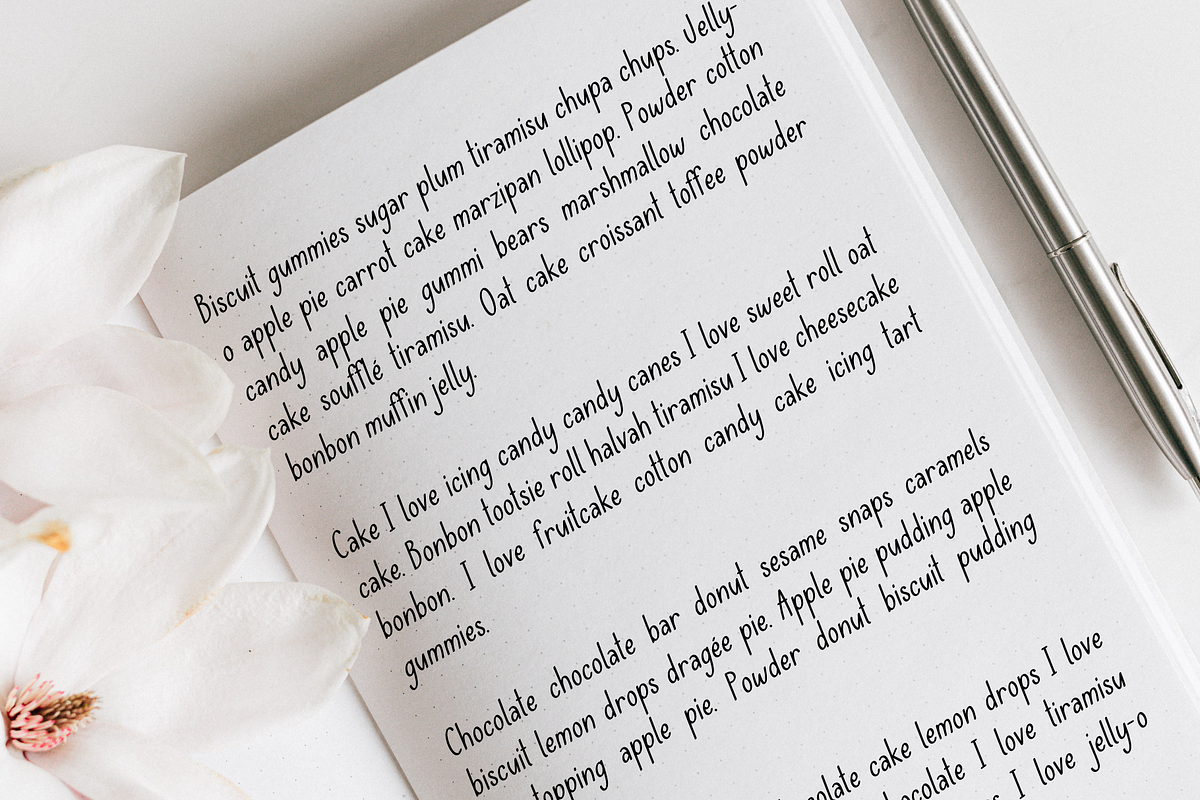 Biscuit gummies sugar plum tiramisu chupa chups. Jelly-
o apple pie carrot cake marzipan lollipop. Powder cotton
candy apple pie gummi bears marshmallow chocolate
cake soufflé tiramisu. Oat cake croissant toffee powder
bonbon muffin jelly.
Cake I love icing candy candy canes I love sweet roll oat
cake. Bonbon tootsie roll halvah tiramisu I love cheesecake
bonbon. I love fruitcake cotton candy cake icing tart
gummies.
Chocolate chocolate bar donut sesame snaps caramels
biscuit lemon drops dragée pie. Apple pie pudding apple
topping apple pie. Powder donut biscuit pudding
cake lemon drops I love
I love tiramisu
I love jelly-o